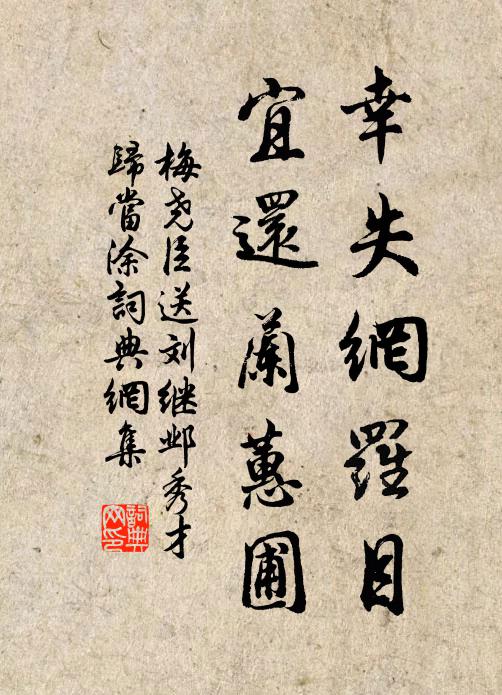 幸失網羅目
宜還蘭蕙圃
梅尧臣送刘继邺秀才
歸當涂詞典網集
詞典网印